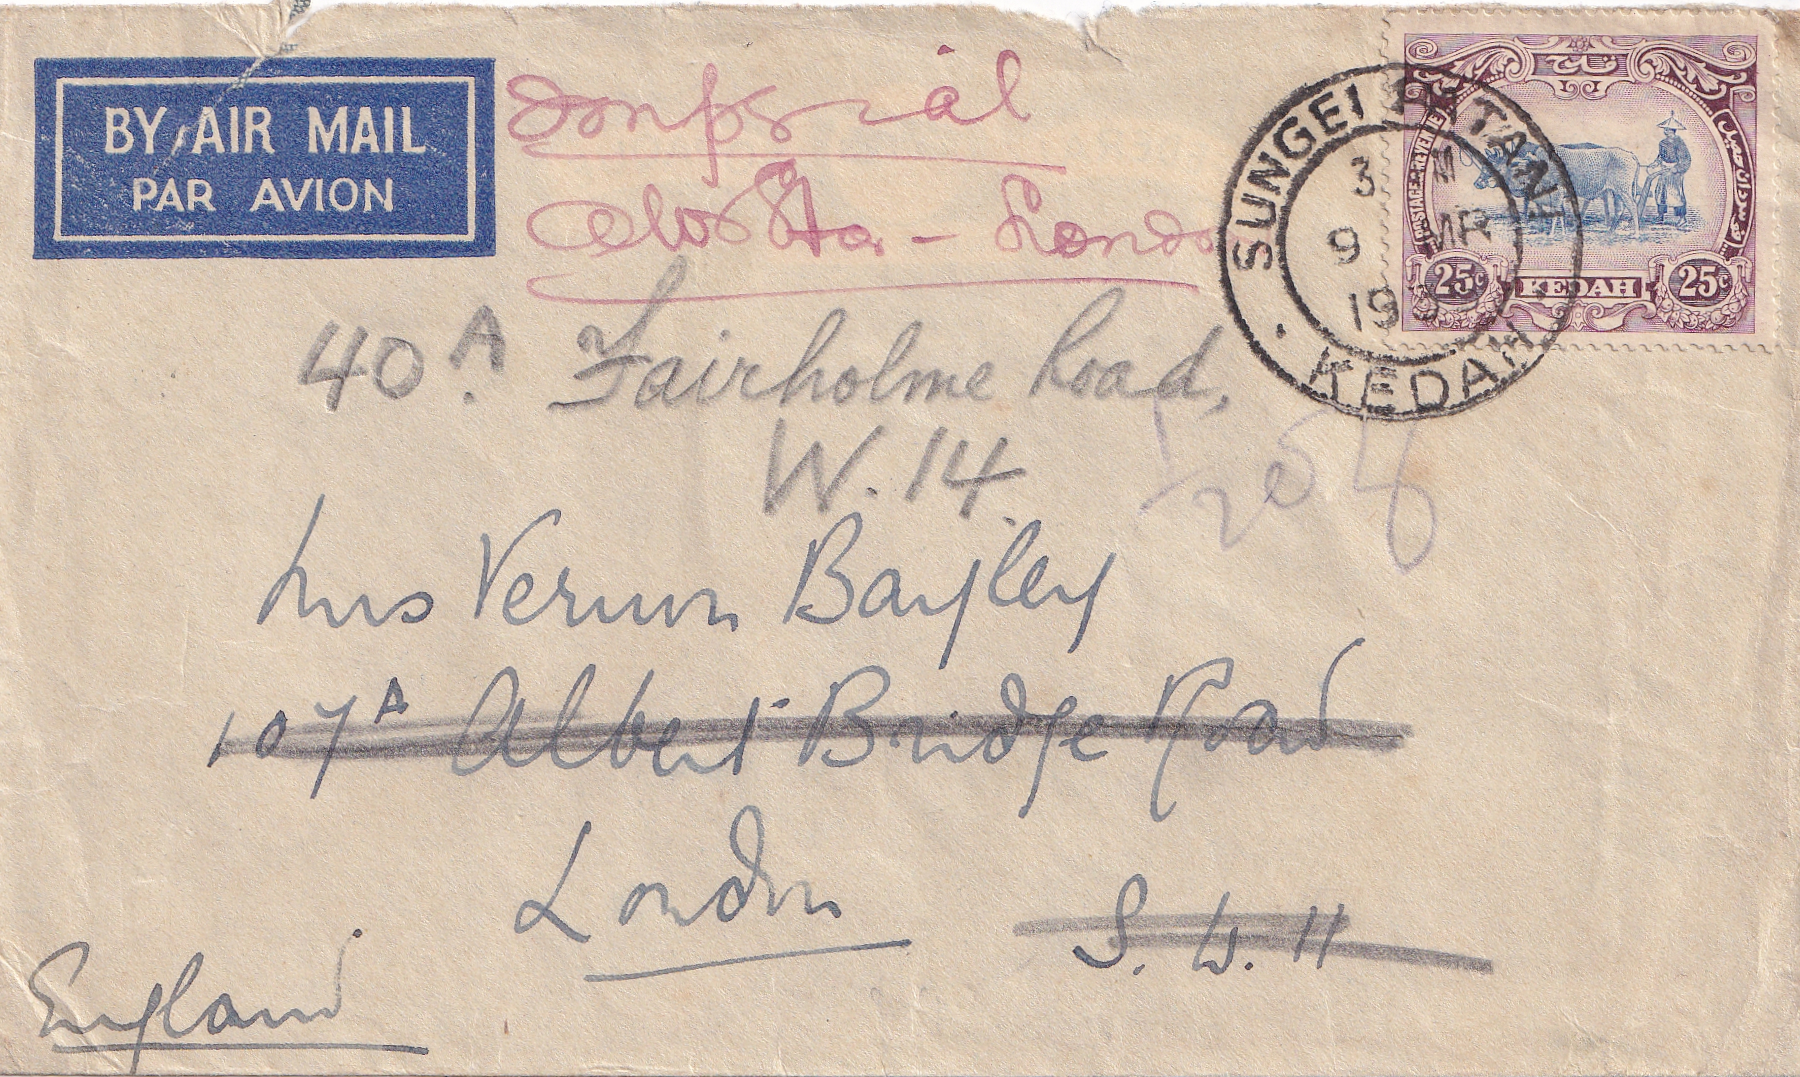 BY AIR MAIL
PAR AVION
Imperial
Alor Star - London
SUNGEI PATANI
3 M
9 MR
193
KEDAH
POSTAGE & REVENUE
25c KEDAH 25c
40A Fairholme Road,
W. 14
Mrs Vernon Bayley
107A Albert Bridge Road
London
S. W. 11
England